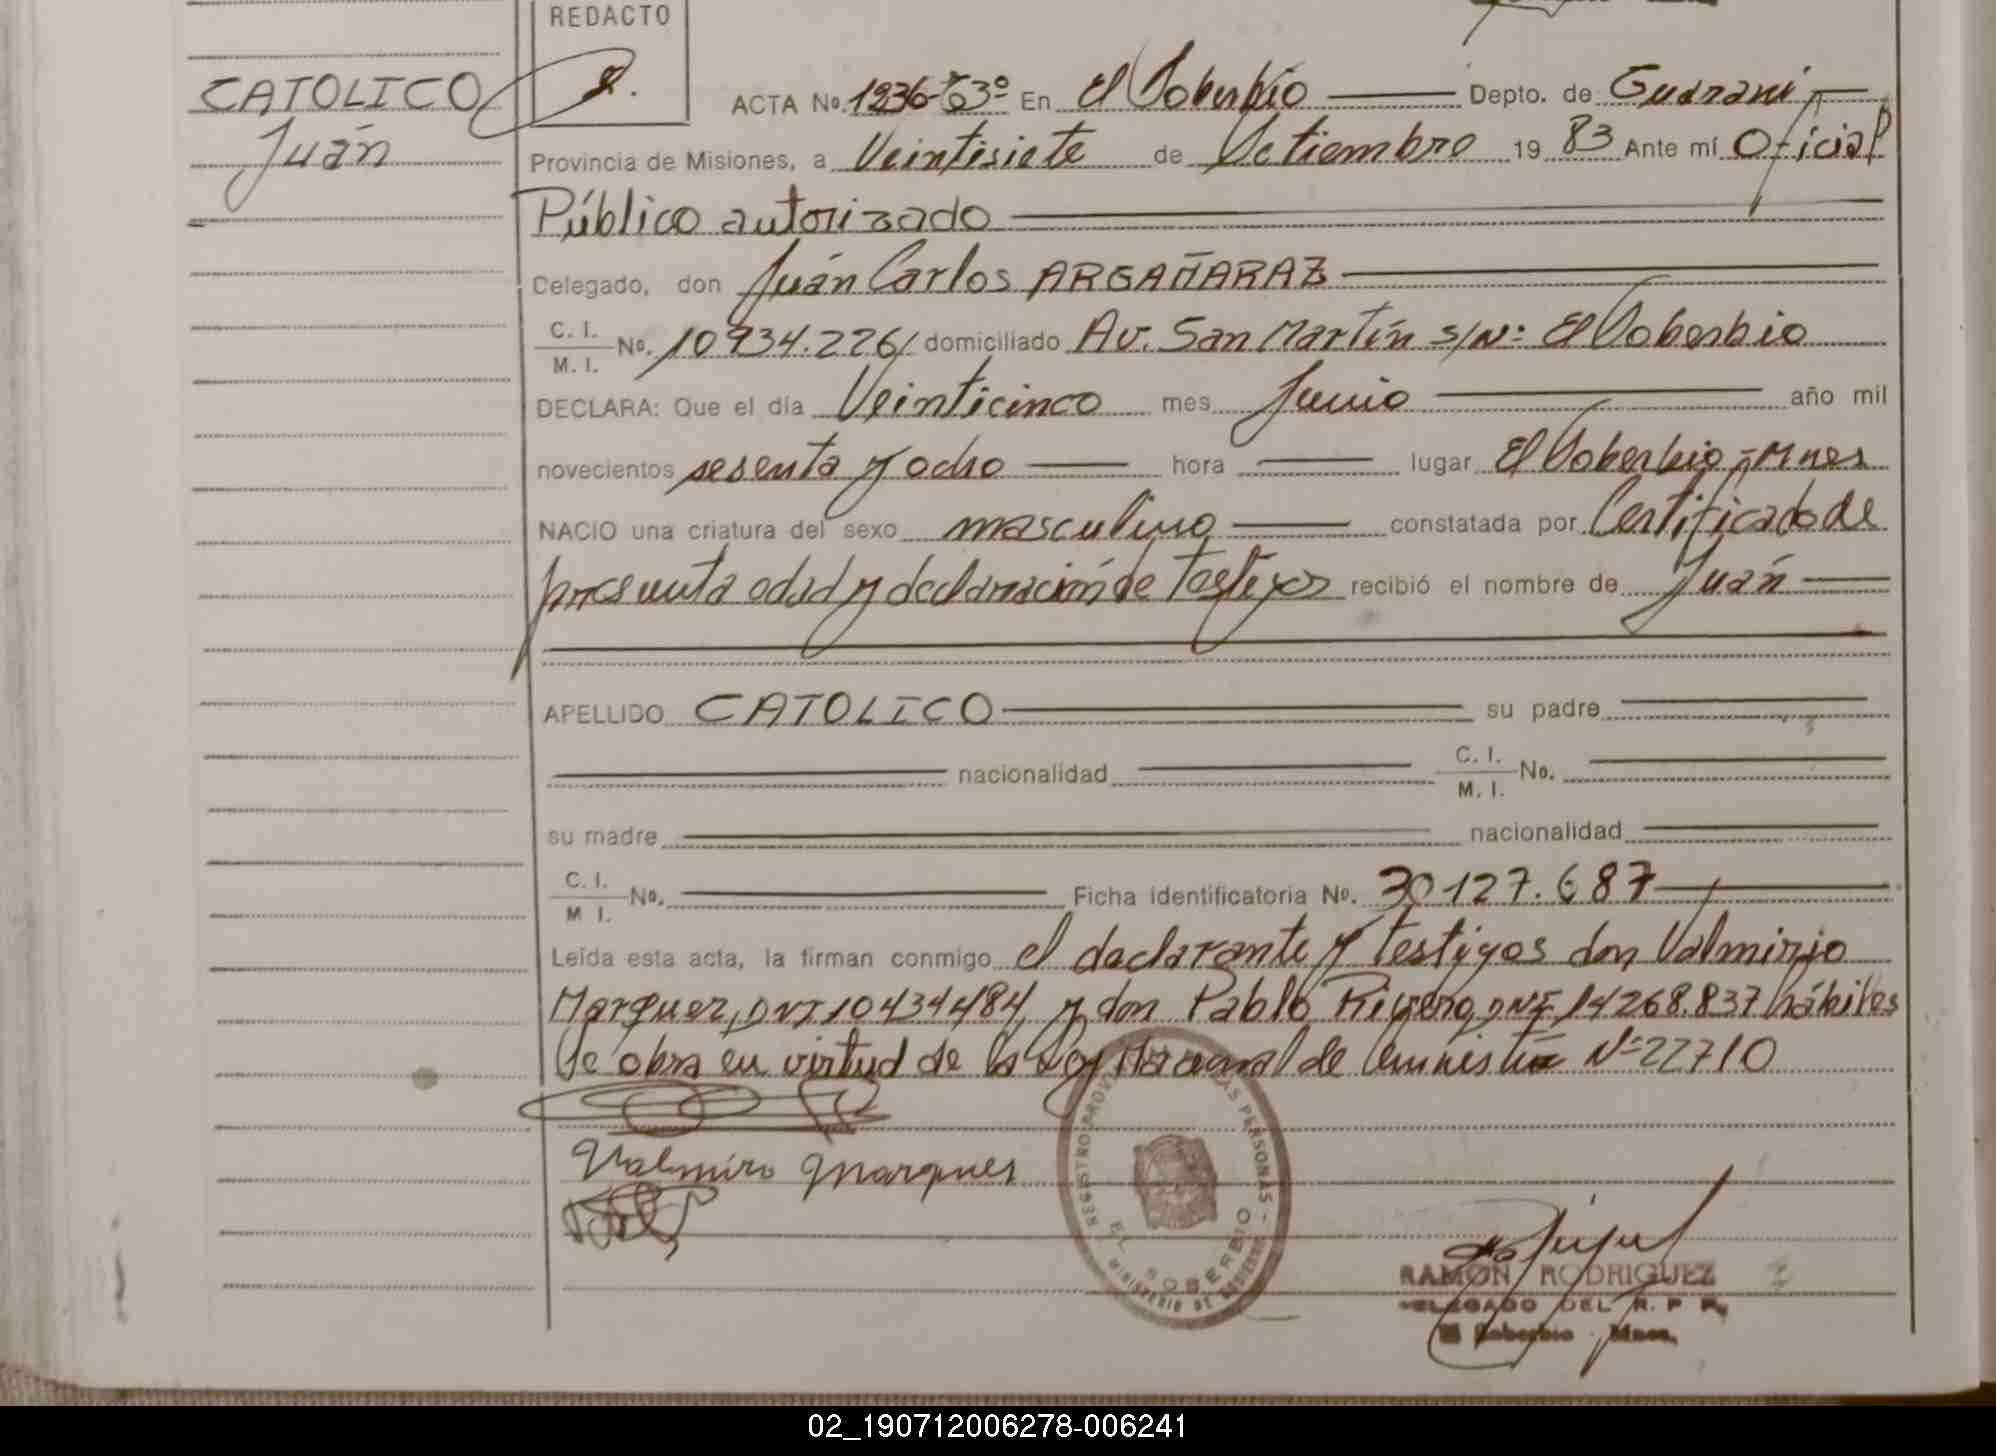 REDACTO
CATOLICO
Juán
ACTA No. 1236-Tº3º En El Soberbio Depto. de Guarani
Provincia de Misiones, a Veintisiete de Setiembre 1983 Ante mí Oficial
Público autorizado
Delegado, don Juán Carlos ARGAÑARAZ
C. I.
M. I. No. 10934.226/ domiciliado Av. San Martín s/Nº El Soberbio
DECLARA: Que el día Veinticinco mes Junio año mil
novecientos sesenta y ocho hora lugar El Soberbio-Mnes
NACIO una criatura del sexo masculino constatada por Certificado de
presunta edad y declaración de testigos recibió el nombre de Juán
APELLIDO CATOLICO su padre
nacionalidad C. I.
M. I. No.
su madre nacionalidad
C. I.
M I. No. Ficha identificatoria No. 30127.687
Leída esta acta, la firman conmigo el declarante y testigos don Valmirio
Marquez, DNI 10434484, y don Pablo Rivero, DNI 14268.837 hábiles
Se obra en virtud de la Ley Nacional de Amnistía Nº 22710
Valmiro Marques
REGISTRO PROVINCIAL DE LAS PERSONAS
EL SOBERBIO
MINISTERIO DE GOBIERNO
RAMON RODRIGUEZ
DELEGADO DEL R. P. P.
El Soberbio - Mnes.
02_190712006278-006241